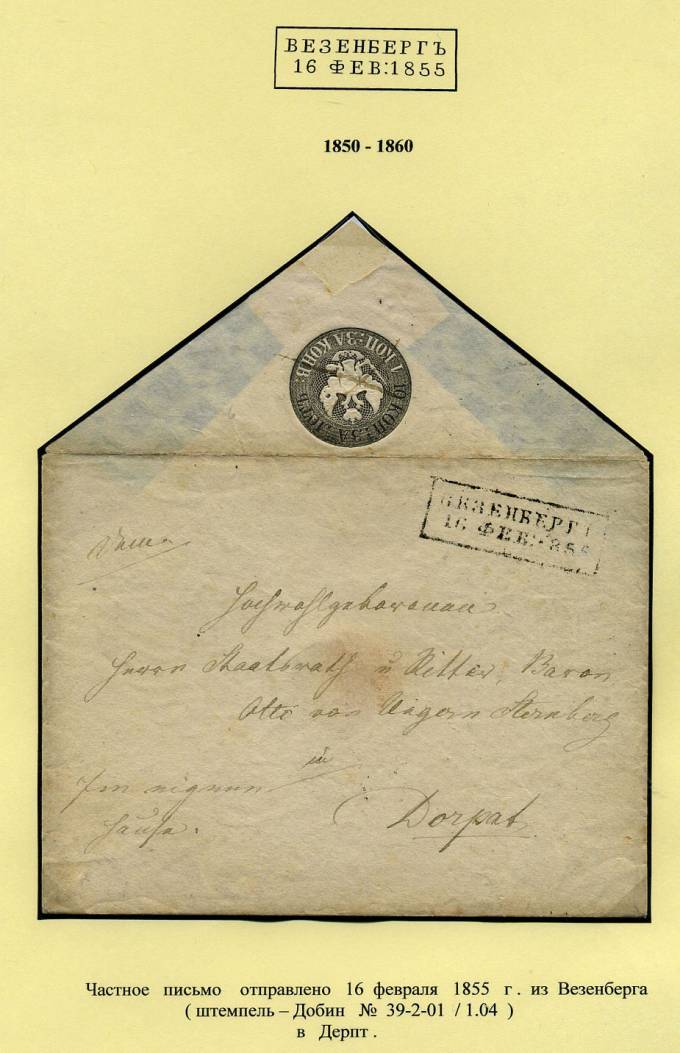 ВЕЗЕНБЕРГЪ
16 ФЕВ:1855
1850 - 1860
1 КОП: ЗА КОНВ: 10 КОП: ЗА ЛОТЪ
ВЕЗЕНБЕРГ
16 ФЕВ: 855
Dem
Hochwohlgeborenen
Herrn Staatsrath u Ritter, Baron
Otto von Ungern Sternberg
in
Im eignen
Dorpat
Hause.
Частное письмо отправлено 16 февраля 1855 г. из Везенберга
( штемпель – Добин № 39-2-01 / 1.04 )
в Дерпт .